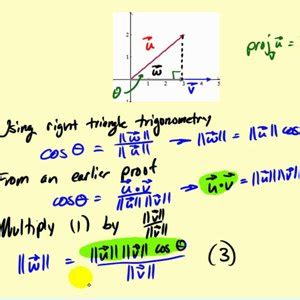 2
1
u⃗
w⃗
θ
v⃗
0 1 2 3 4 5
proj_v⃗ u⃗ =
Using right triangle trigonometry
cos θ = ||w⃗|| / ||u⃗|| → ||w⃗|| = ||u⃗|| cos
From an earlier proof
cos θ = u⃗ · v⃗ / ||u⃗|| ||v⃗|| → u⃗ · v⃗ = ||u⃗|| ||v⃗||
Multiply (1) by ||v⃗|| / ||v⃗||
||w⃗|| = ||u⃗|| ||v⃗|| cos θ / ||v⃗|| (3)